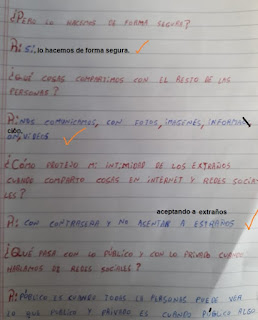 ¿PERO LO HACEMOS DE FORMA SEGURA?
R: SI, lo hacemos de forma segura.
¿QUÉ COSAS COMPARTIMOS CON EL RESTO DE LAS
PERSONAS?
R: NOS COMUNICAMOS, CON FOTOS, IMAGENES, INFORMA
cibo,
ON, VIDEOS
¿CÓMO PROTEJO MI INTIMIDAD DE LOS EXTRAÑOS
CUANDO COMPARTO COSAS EN INTERNET Y REDES SOCIA
LES?
aceptando a extraños
R: CON CONTRASEÑA Y NO ACENTAR A ESTRAÑOS
¿QUÉ PASA CON LO PÚBLICO Y CON LO PRIVADO CUANDO
HABLAMOS DE REDES SOCIALES?
R: PÚBLICO ES CUANDO TODOS LA PERSONAS PUEDE VER
LO QUE PUBLICO Y PRIVADO ES CUANDO PUBLICO ALGO